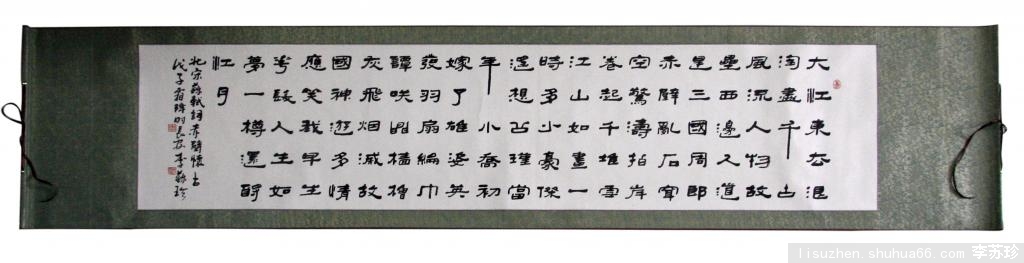 大江東去浪
淘盡千古
風流人物故
壘西邊人道
是三國周郎
赤壁亂石穿
空驚濤拍岸
卷起千堆雪
江山如畫一
時多少豪傑
遥想公瑾當
年小喬初
嫁了雄姿英
發羽扇綸巾
譚咲間檣櫓
灰飛烟滅故
國神遊多情
應笑我早生
華髮人生如
夢一樽還酹
江月
北宋蘇軾詞赤壁懷古
戊子霜降長安李蘇珍
lisuzhen.shuhua66.com 李苏珍